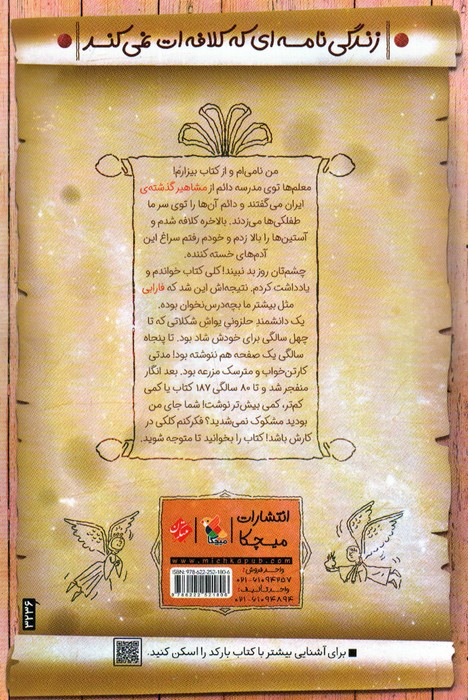 زندگی نامه ای که کلافه ات نمی کند
من نامی‌ام و از کتاب بیزارم!
معلم‌ها توی مدرسه دائم از مشاهیر گذشته‌ی
ایران می‌گفتند و دائم آن‌ها را توی سر ما
طفلکی‌ها می‌زدند. بالاخره کلافه شدم و
آستین‌ها را بالا زدم و خودم رفتم سراغ این
آدم‌های خسته کننده.
چشم‌تان روز بد نبیند! کلی کتاب خواندم و
یادداشت کردم. نتیجه‌اش این شد که فارابی
مثل بیشتر ما بچه‌درس‌نخوان بوده.
یک دانشمند حلزونی یواش شکلاتی که تا
چهل سالگی برای خودش شاد بود. تا پنجاه
سالگی یک صفحه هم ننوشته بود! مدتی
کارتن‌خواب و مترسک مزرعه بود. بعد انگار
منفجر شد و تا ۸۰ سالگی ۱۸۷ کتاب یا کمی
کم‌تر، کمی بیش‌تر نوشت! شما جای من
بودید مشکوک نمی‌شدید؟ فکرکنم کلکی در
کارش باشد! کتاب را بخوانید تا متوجه شوید.
انتشارات
میچکا
میچکا
www.michkapub.com
ISBN: 978-622-252-180-6
9 786222 521806
واحد فروش:
۰۲۱-۶۱۰۹۴۲۵۷
واحد تألیف:
۰۲۱-۶۱۰۹۴۸۹۴
۳۲۳۶
برای آشنایی بیشتر با کتاب بارکد را اسکن کنید.